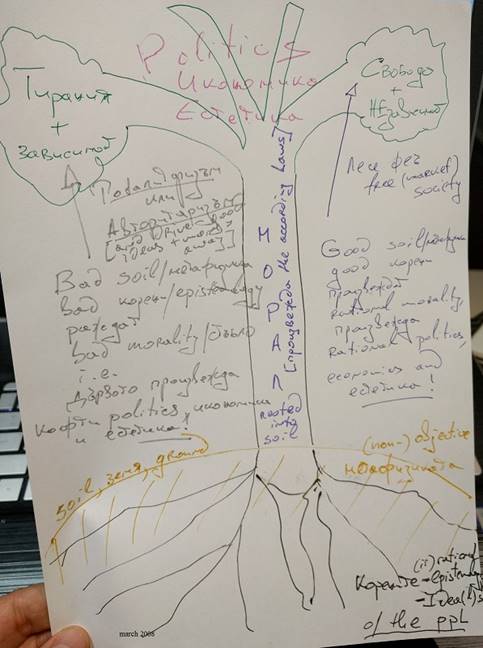 Politics
Икономика
Естетика
Тирания
+
зависимост
Свобода
+
Независимост
Лесе фер
free (market)
society
Тоталитаризъм
или
Авторитаризъм
[and Drive good
ideas + morals
away]
МОРАЛ
[произвежда the according laws]
rooted
into
soil
Bad soil/метафизика
bad корен/epistemology
раждат
bad morality/стъбло
i.e.
Дървото произвежда
кофти politics, икономика
и естетика.
Good soil/метафизика
good корен
произвеждат
Rational morality,
произвежда
Rational politics,
economics and
естетика!
soil, земя, ground
(non-) objective
метафизиката
(ir)rational
Корените - epistemology
- Idea(l)s
of the ppl
march 2008